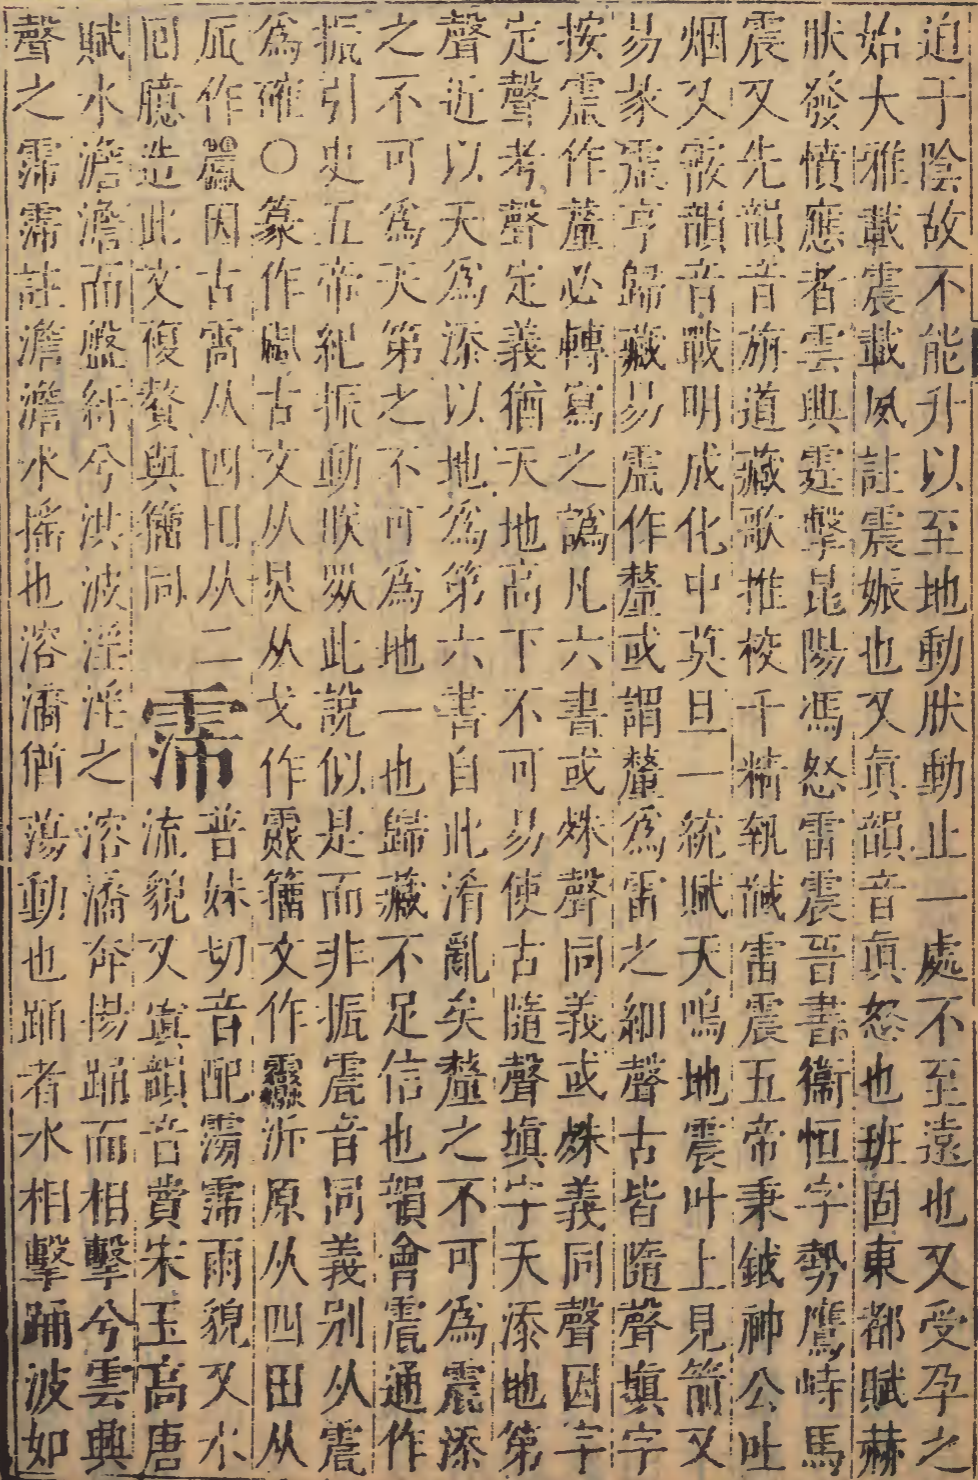 迫于陰故不能升以至地動肰動止一處不至遠也又受孕之
始大雅載震載夙註震娠也又眞韻音眞怒也班固東都賦赫
肰發憤應者雲興霆擊昆陽馮怒雷震晉書衞恒字勢鷹峙馬
震又先韻音旃道藏歌推校千精執馘雷震五帝秉鉞神公吐
烟又霰韻音戰明成化中莫旦一統賦天鳴地震叶上見箭又
易彖震亨歸藏易震作釐或謂釐爲雷之細聲古皆隨聲塡字
按震作釐必轉寫之譌凡六書或殊聲同義或殊義同聲因字
定聲考聲定義猶天地高下不可易使古隨聲塡字天添地第
聲近以天爲添以地爲第六書自此淆亂矣釐之不可爲震添
之不可爲天第之不可爲地一也歸藏不足信也韻會震通作
振引史五帝紀振動朕眾此說似是而非振震音同義別从震
爲確○篆作古文从炅从戈作籒文作泝原从四田从
𠂢作因古霄从四田从二普妹切音配霶霈雨貌又水
囘臆造此文複贅與籒同霈流貌又寘韻音費宋玉高唐
賦水澹澹而盤紆兮洪波淫淫之溶㵝奔揚踊而相擊兮雲興
聲之霈霈註澹澹水搖也溶㵝猶蕩動也踊者水相擊踊波如